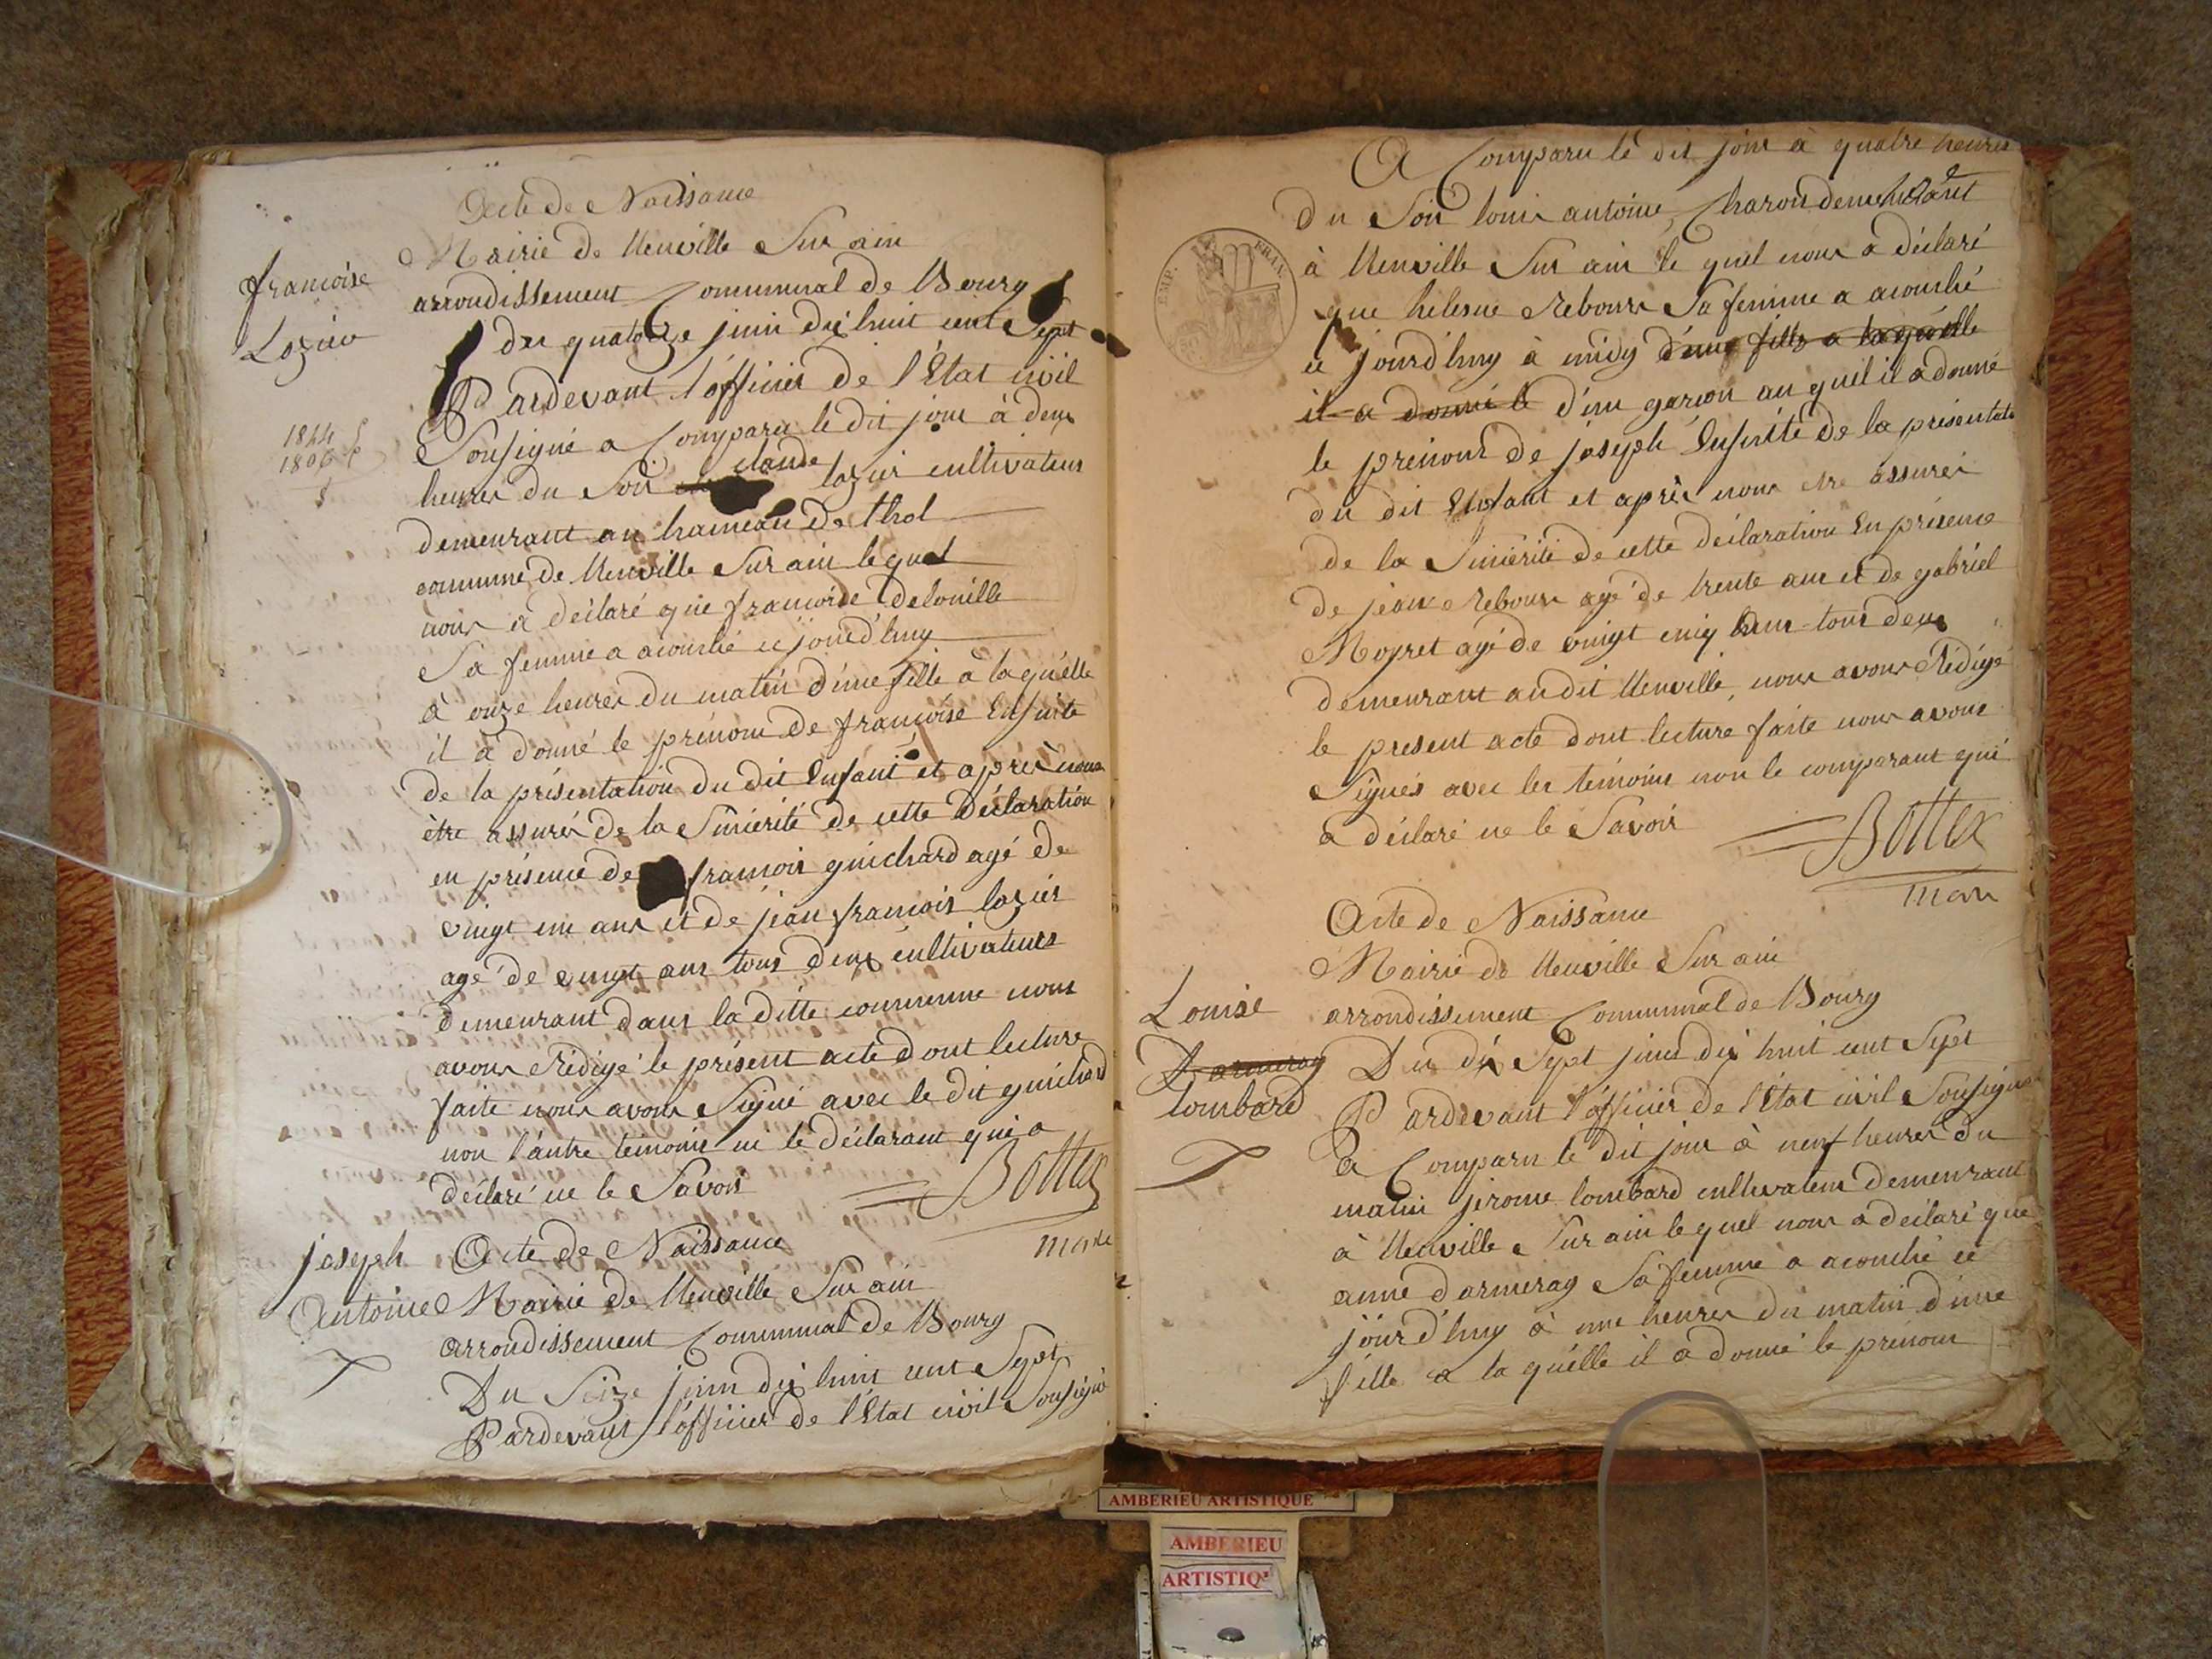 Acte de Naissance
Mairie de Neuville Sur ain
françoise
Lozier
arrondissement Communal de Bourg
du quatorze juin dix huit cent Sept
Pardevant l'officier de l'Etat civil
1844
1806
Sousigné a Comparu le dit jour à deux
heures du Soir claude lozier cultivateur
demeurant au hameau de thol
commune de Neuville Sur ain lequel
nous a déclaré que francoise Delouille
Sa femme a acouché ce jourd'huy
à onze heures du matin d'une fille a laquelle
il a donné le prénom de françoise Ensuite
de la présentation du dit Enfant et après nous
être assurés de la Sincérité de cette Déclaration
en présence de francois guichard agé de
vingt un ans et de jean francois lozier
agé de vingt ans tous deux cultivateurs
demeurant dans la ditte commune nous
avons Rédigé le présent acte dont lecture
faite nous avons Signé avec le dit guichard
non l'autre témoins ni le déclarant qui a
déclaré ne le Savoir
Bottex
maire
joseph
Antoine
Acte de Naissance
Mairie de Neuville Sur ain
arrondissement Communal de Bourg
Du Seize juin dix huit cent Sept
Pardevant l'officier de l'Etat civil Sousigné
A Comparu le dit jour à quatre heures
du Soir louis antoine Charon demeurant
EMP. FRAN.
à Neuville Sur ain le quel nous a déclaré
que helesne Rebours Sa femme a acouché
ce jourd'huy à midy d'une fille a laquelle
il a donné le d'un garcon au quel il a donné
le prénom de joseph Ensuite de la présentat
du dit Enfant et après nous etre assurés
de la Sincérité de cette déclaration En présence
de jean Rebours agé de trente ans et de gabriel
Moyret agé de vingt cinq ans tous deux
demeurant au dit Neuville, nous avons Rédigé
le présent acte dont lecture faite nous avons
Signés avec les témoins non le comparant qui
a déclaré ne le Savoir
Bottex
maire
Acte de Naissance
Mairie de Neuville Sur ain
Louise
Darmeray
lombard
arrondissement Communal de Bourg
Du dix Sept juin dix huit cent Sept
Pardevant l'officier de l'Etat civil Sousigné
A Comparu le dit jour à neuf heures du
matin jerome lombard cultivateur demeurant
à Neuville Sur ain lequel nous a déclaré que
anne darmeray Sa femme a acouché ce
jourd'huy à une heures du matin d'une
fille a laquelle il a donné le prénom
AMBERIEU ARTISTIQUE
AMBERIEU
ARTISTIQ